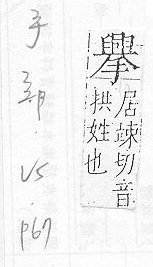 擧
居竦切音
拱姓也
手部.V5.p67